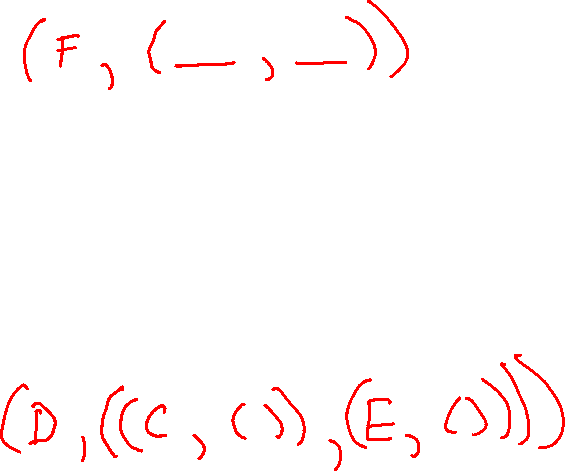 (F, (__, __))
(D, ((C, ()), (E, ())))